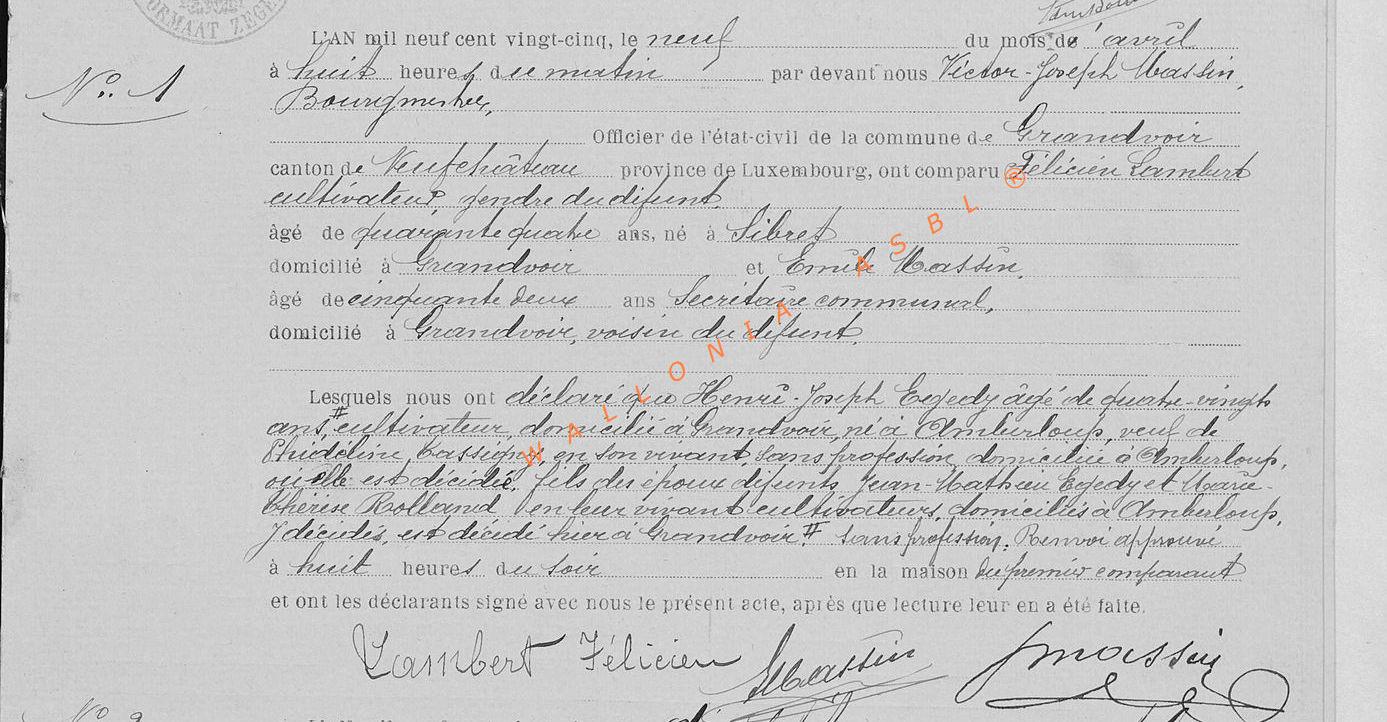 ORMAAT ZEGE
L'AN mil neuf cent vingt-cinq, le neuf du mois de avril
No. 1
à huit heures du matin par devant nous Victor-Joseph Massin,
Bourgmestre,
Officier de l'état-civil de la commune de Grandvoir
canton de Neufchâteau province de Luxembourg, ont comparu Félicien Lambert
cultivateur, gendre du défunt,
âgé de quarante quatre ans, né à Sibret
domicilié à Grandvoir et Emile Massin,
âgé de cinquante deux ans Secrétaire communal,
domicilié à Grandvoir, voisin du défunt,
Lesquels nous ont déclaré que Henri-Joseph Egedy âgé de quatre-vingts
ans, # cultivateur, domicilié à Grandvoir, né à Amberloup, veuf de
en son vivant, sans profession, domiciliée à Amberloup,
où elle est décédée, fils des époux défunts Jean-Mathieu Egedy et Marie-
Thérèse Rolland en leur vivant cultivateurs, domiciliés à Amberloup,
y décédés, est décédé hier à Grandvoir # sans profession. Renvoi approuvé
à huit heures du soir en la maison du premier comparant
et ont les déclarants signé avec nous le présent acte, après que lecture leur en a été faite.
Lambert Félicien Massin Massin
WALLONIA ASBL ®
No 2